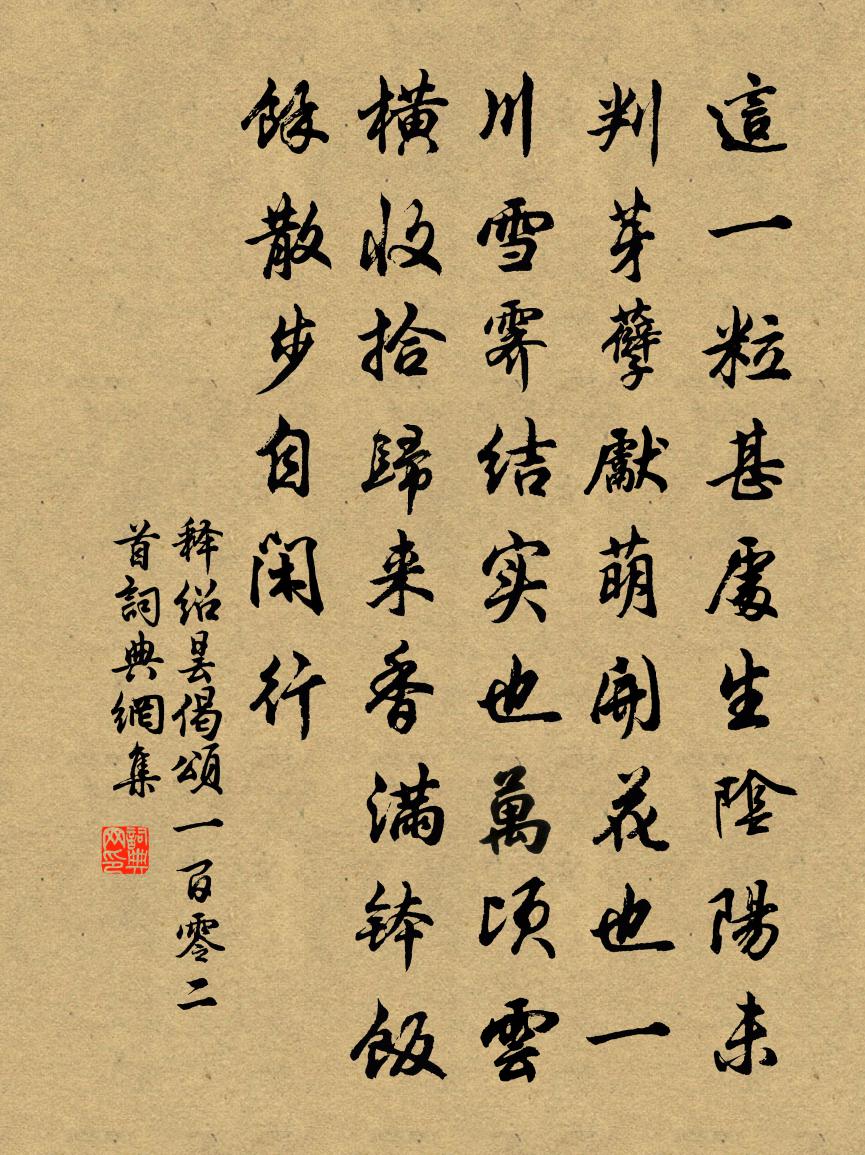 這一粒甚處生陰陽未
判芽孽獻萌開花也一
川雪霽結实也萬頃雲
横收拾歸来香满钵飯
餘散步自閑行
释紹曇偈頌一百零二
首詞典網集
詞典网印